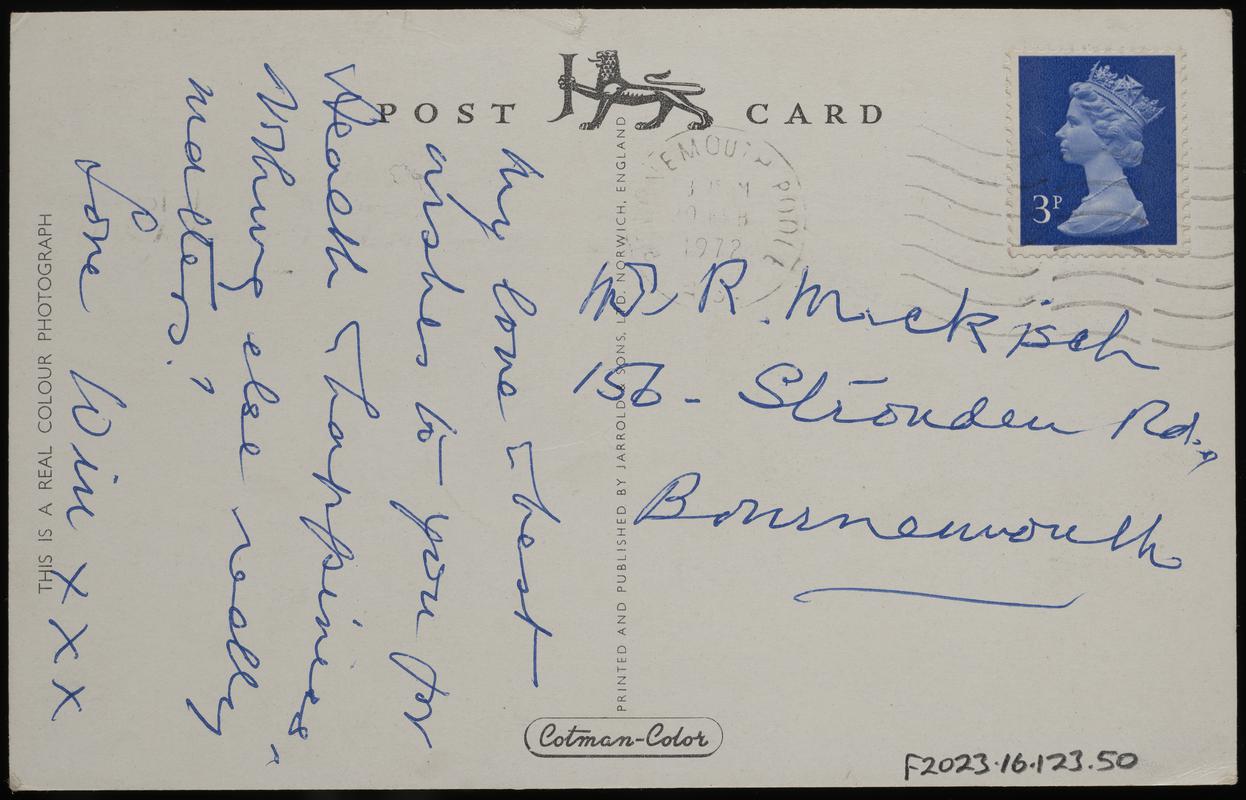 POST CARD
BOURNEMOUTH POOLE
1972
3P
My love & best
wishes to you for
Health & happiness,
Nothing else really
matters?
Love Win X X X
R. Mackisch
156 - Strouden Rd.,
Bournemouth
THIS IS A REAL COLOUR PHOTOGRAPH
PRINTED AND PUBLISHED BY JARROLD & SONS, LTD. NORWICH, ENGLAND
Cotman-Color
F2023.16.123.50